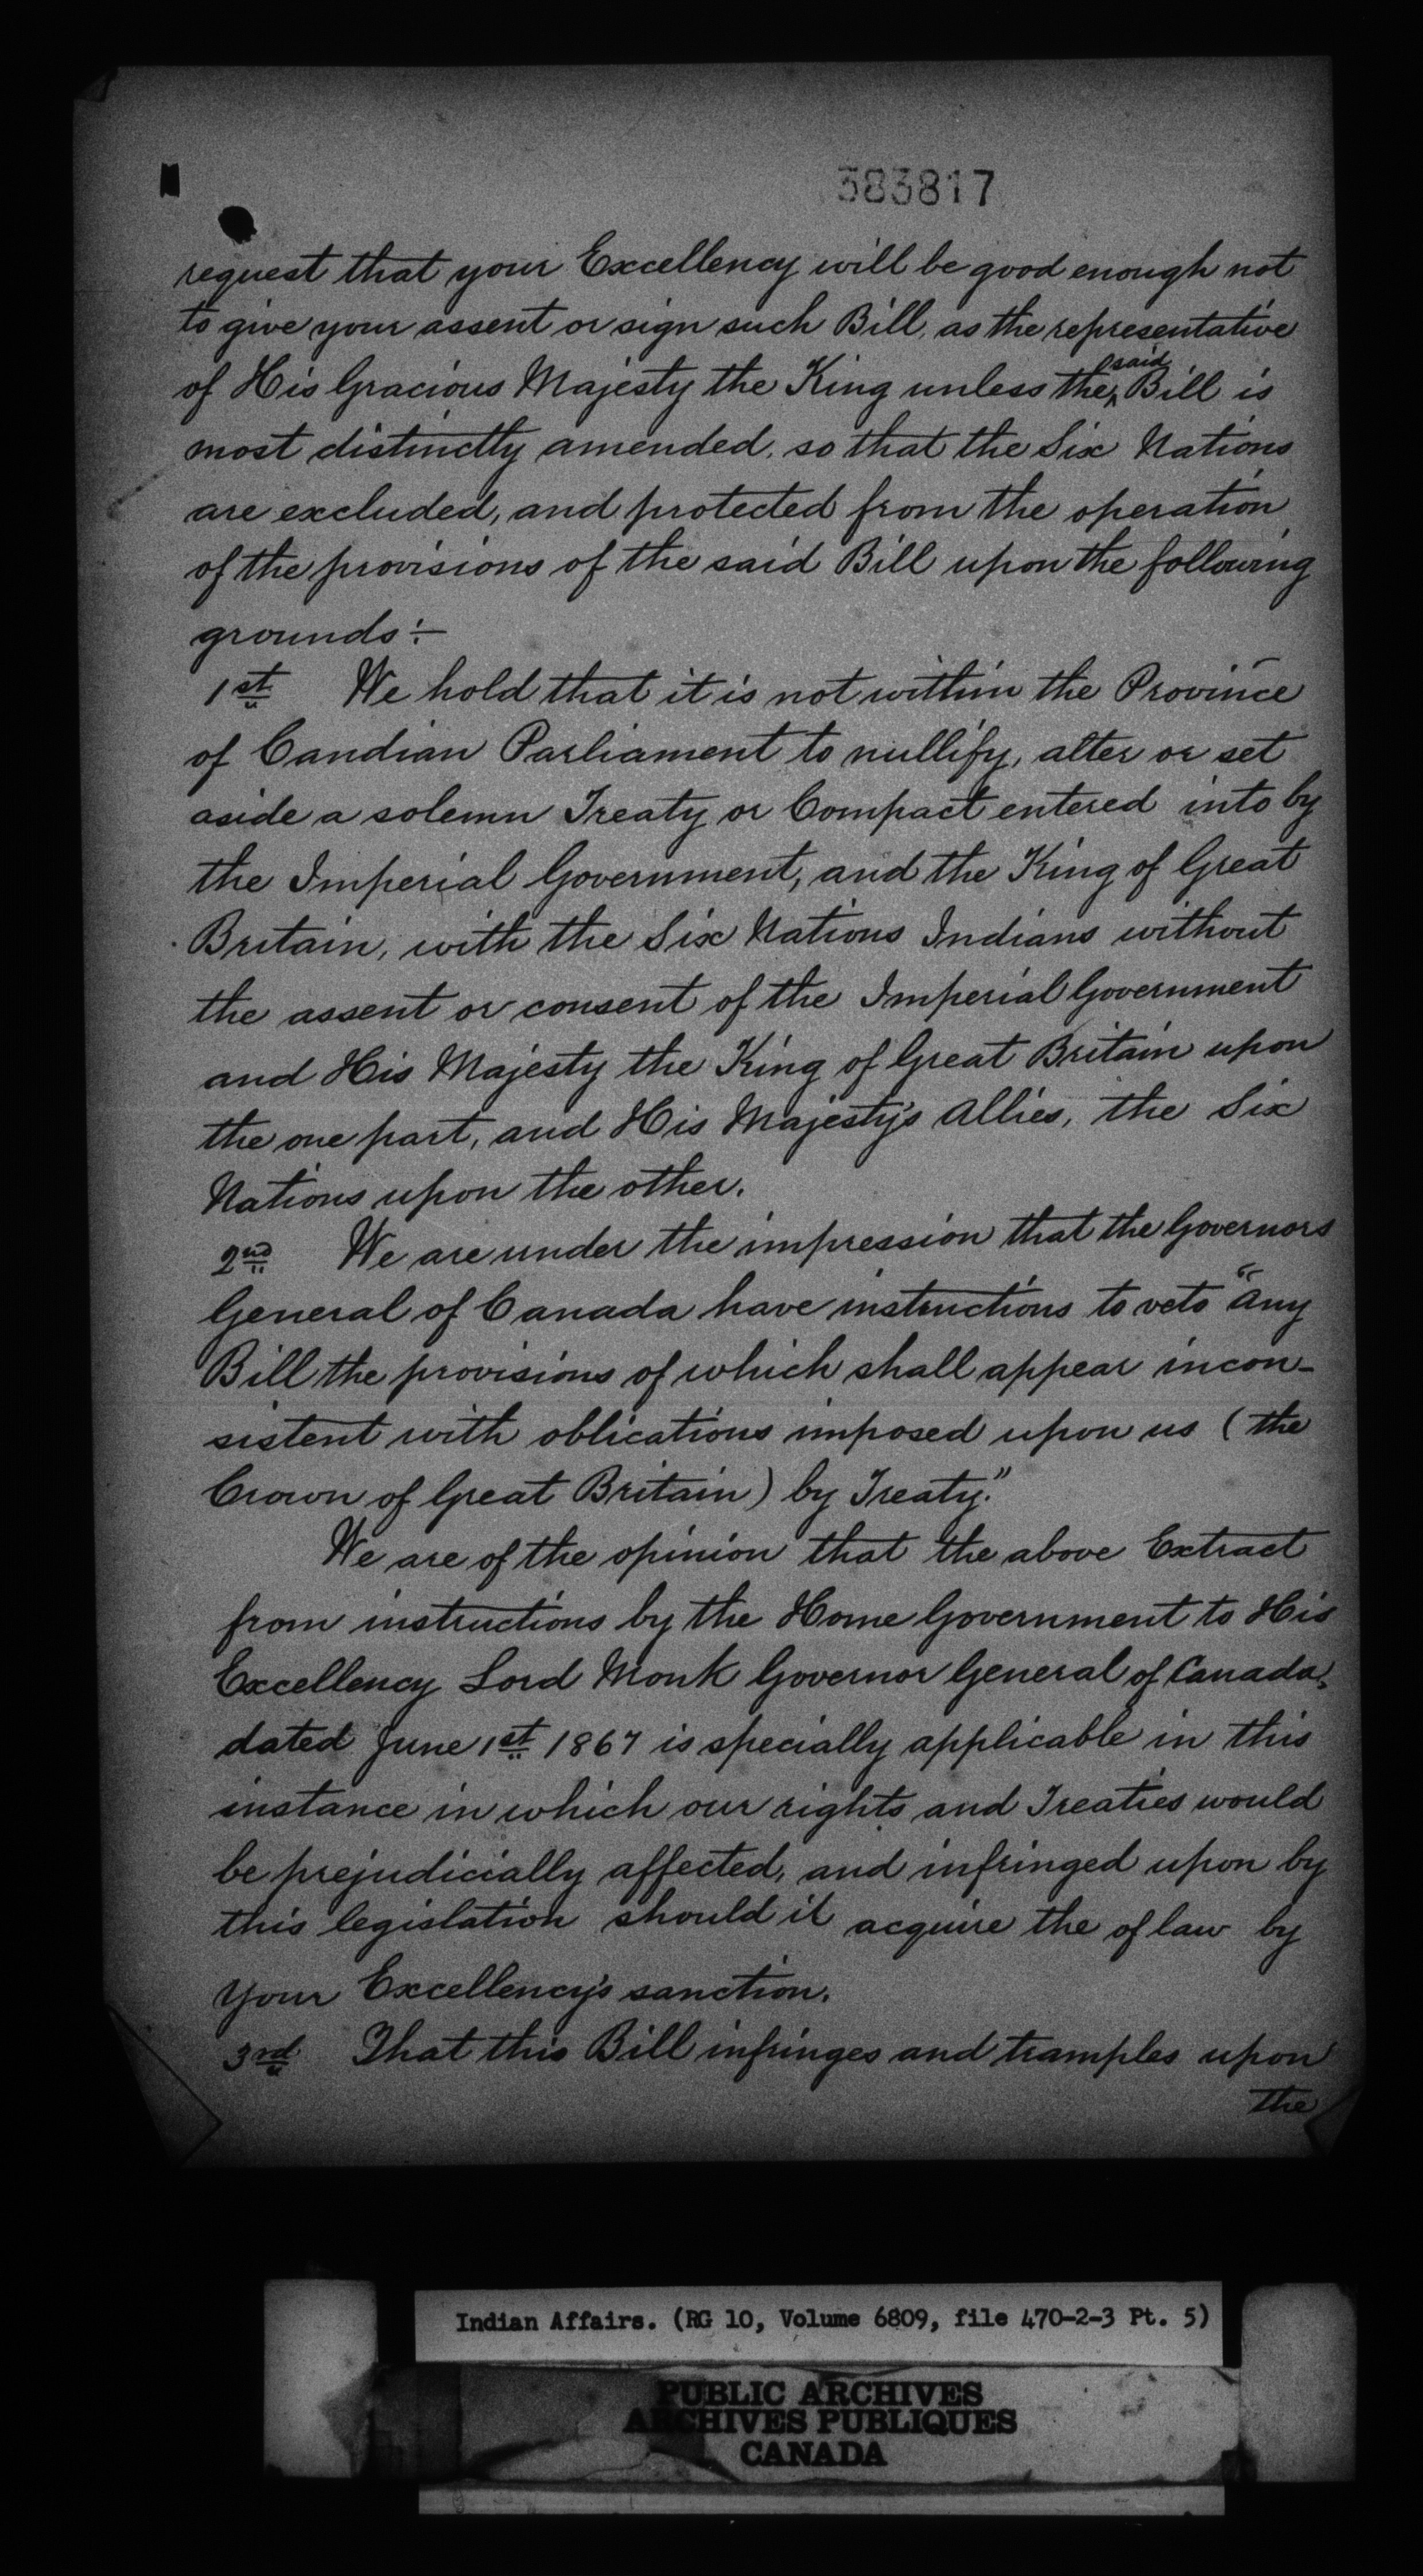 383817
request that your Excellency will be good enough not
to give your assent or sign such Bill, as the representative
of His Gracious Majesty the King unless the said Bill is
most distinctly amended, so that the Six Nations
are excluded, and protected from the operation
of the provisions of the said Bill upon the following
grounds:-
1st We hold that it is not within the Province
of Candian Parliament to nullify, alter or set
aside a solemn Treaty or Compact entered into by
the Imperial Government, and the King of Great
Britain, with the Six Nations Indians without
the assent or consent of the Imperial Government
and His Majesty the King of Great Britain upon
the one part, and His Majesty's Allies, the Six
Nations upon the other.
2nd We are under the impression that the Governors
General of Canada have instructions to veto "Any
Bill the provisions of which shall appear incon-
sistent with oblications imposed upon us (the
Crown of Great Britain) by Treaty."
We are of the opinion that the above Extract
from instructions by the Home Government to His
Excellency Lord Monk Governor General of Canada,
dated June 1st 1867 is specially applicable in this
instance in which our rights and Treaties would
be prejudicially affected, and infringed upon by
this legislation should it acquire the of law by
your Excellency's sanction.
3rd That this Bill infringes and tramples upon
the
Indian Affairs. (RG 10, Volume 6809, file 470-2-3 Pt. 5)
PUBLIC ARCHIVES
ARCHIVES PUBLIQUES
CANADA